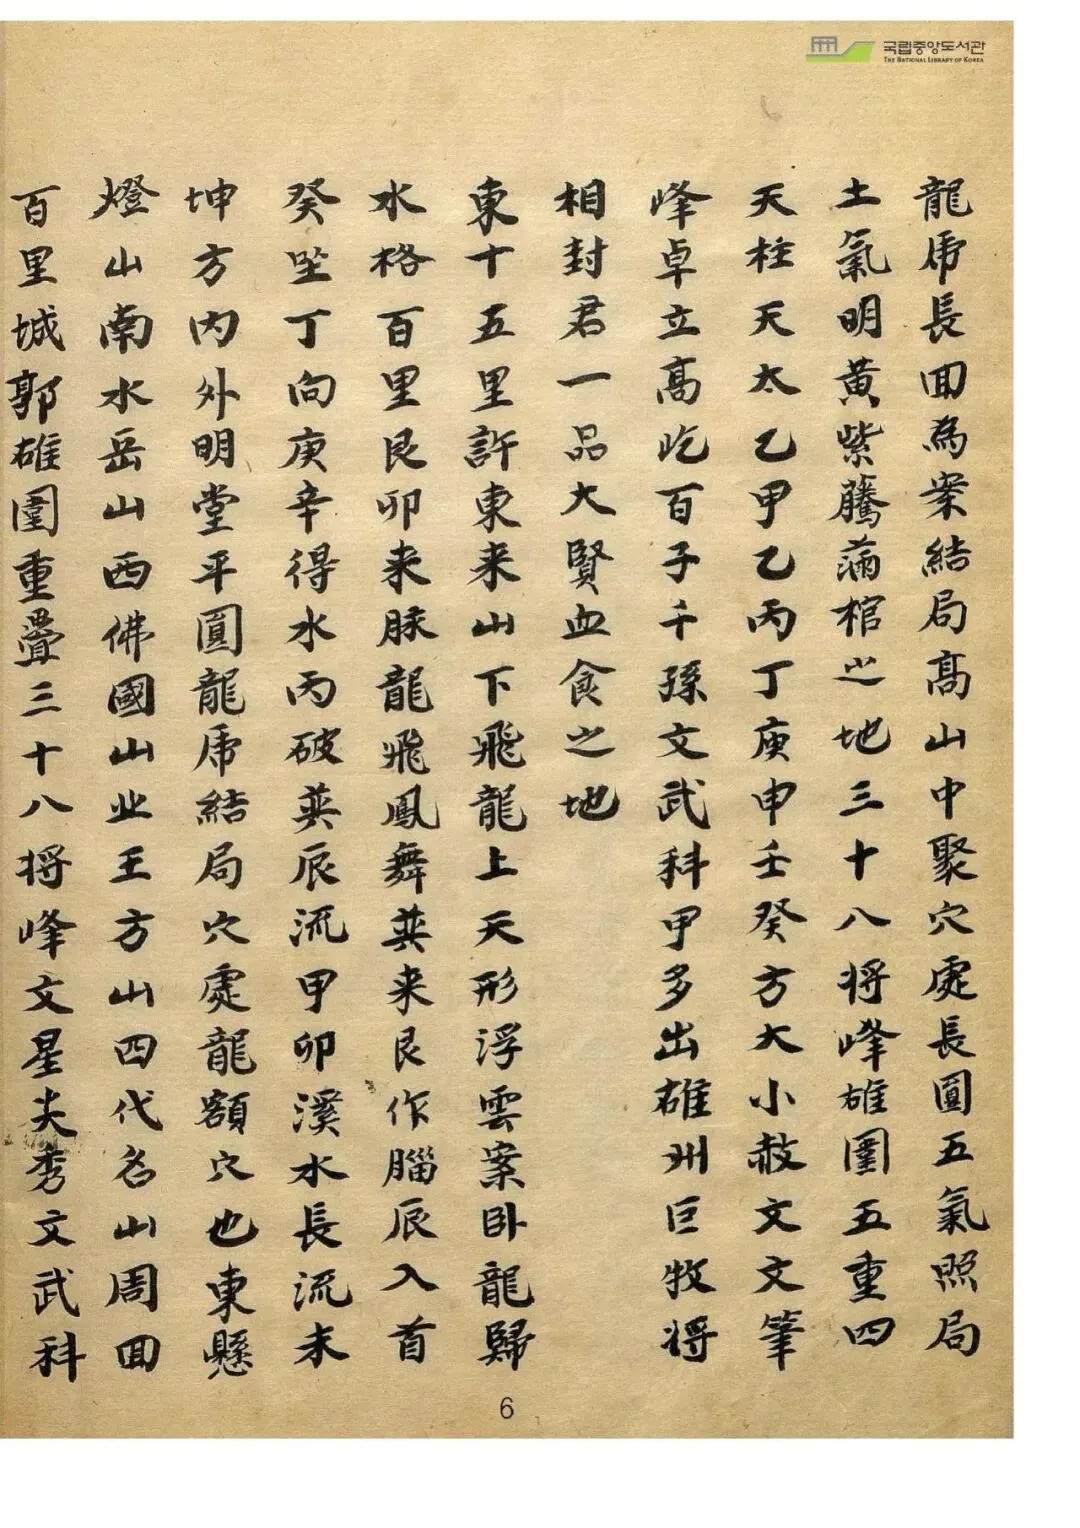 국립중앙도서관
THE NATIONAL LIBRARY OF KOREA
龍虎長回為案結局髙山中聚穴處長圓五氣照局
土氣明黃紫騰滿棺之地三十八將峰雄圍五重四
天柱天太乙甲乙丙丁庚申壬癸方大小赦文文筆
峰卓立髙屹百子千孫文武科甲多出雄州巨牧將
相封君一品大賢血食之地
東十五里許東来山下飛龍上天形浮雲案卧龍歸
水格百里艮卯来脉龍飛鳳舞巽来艮作腦辰入首
癸坐丁向庚辛得水丙破巽辰流甲卯溪水長流未
坤方內外明堂平圓龍虎結局穴處龍額穴也東懸
燈山南水岳山西佛國山北王方山四代名山周回
百里城郭雄圍重疊三十八將峰文星尖秀文武科
6